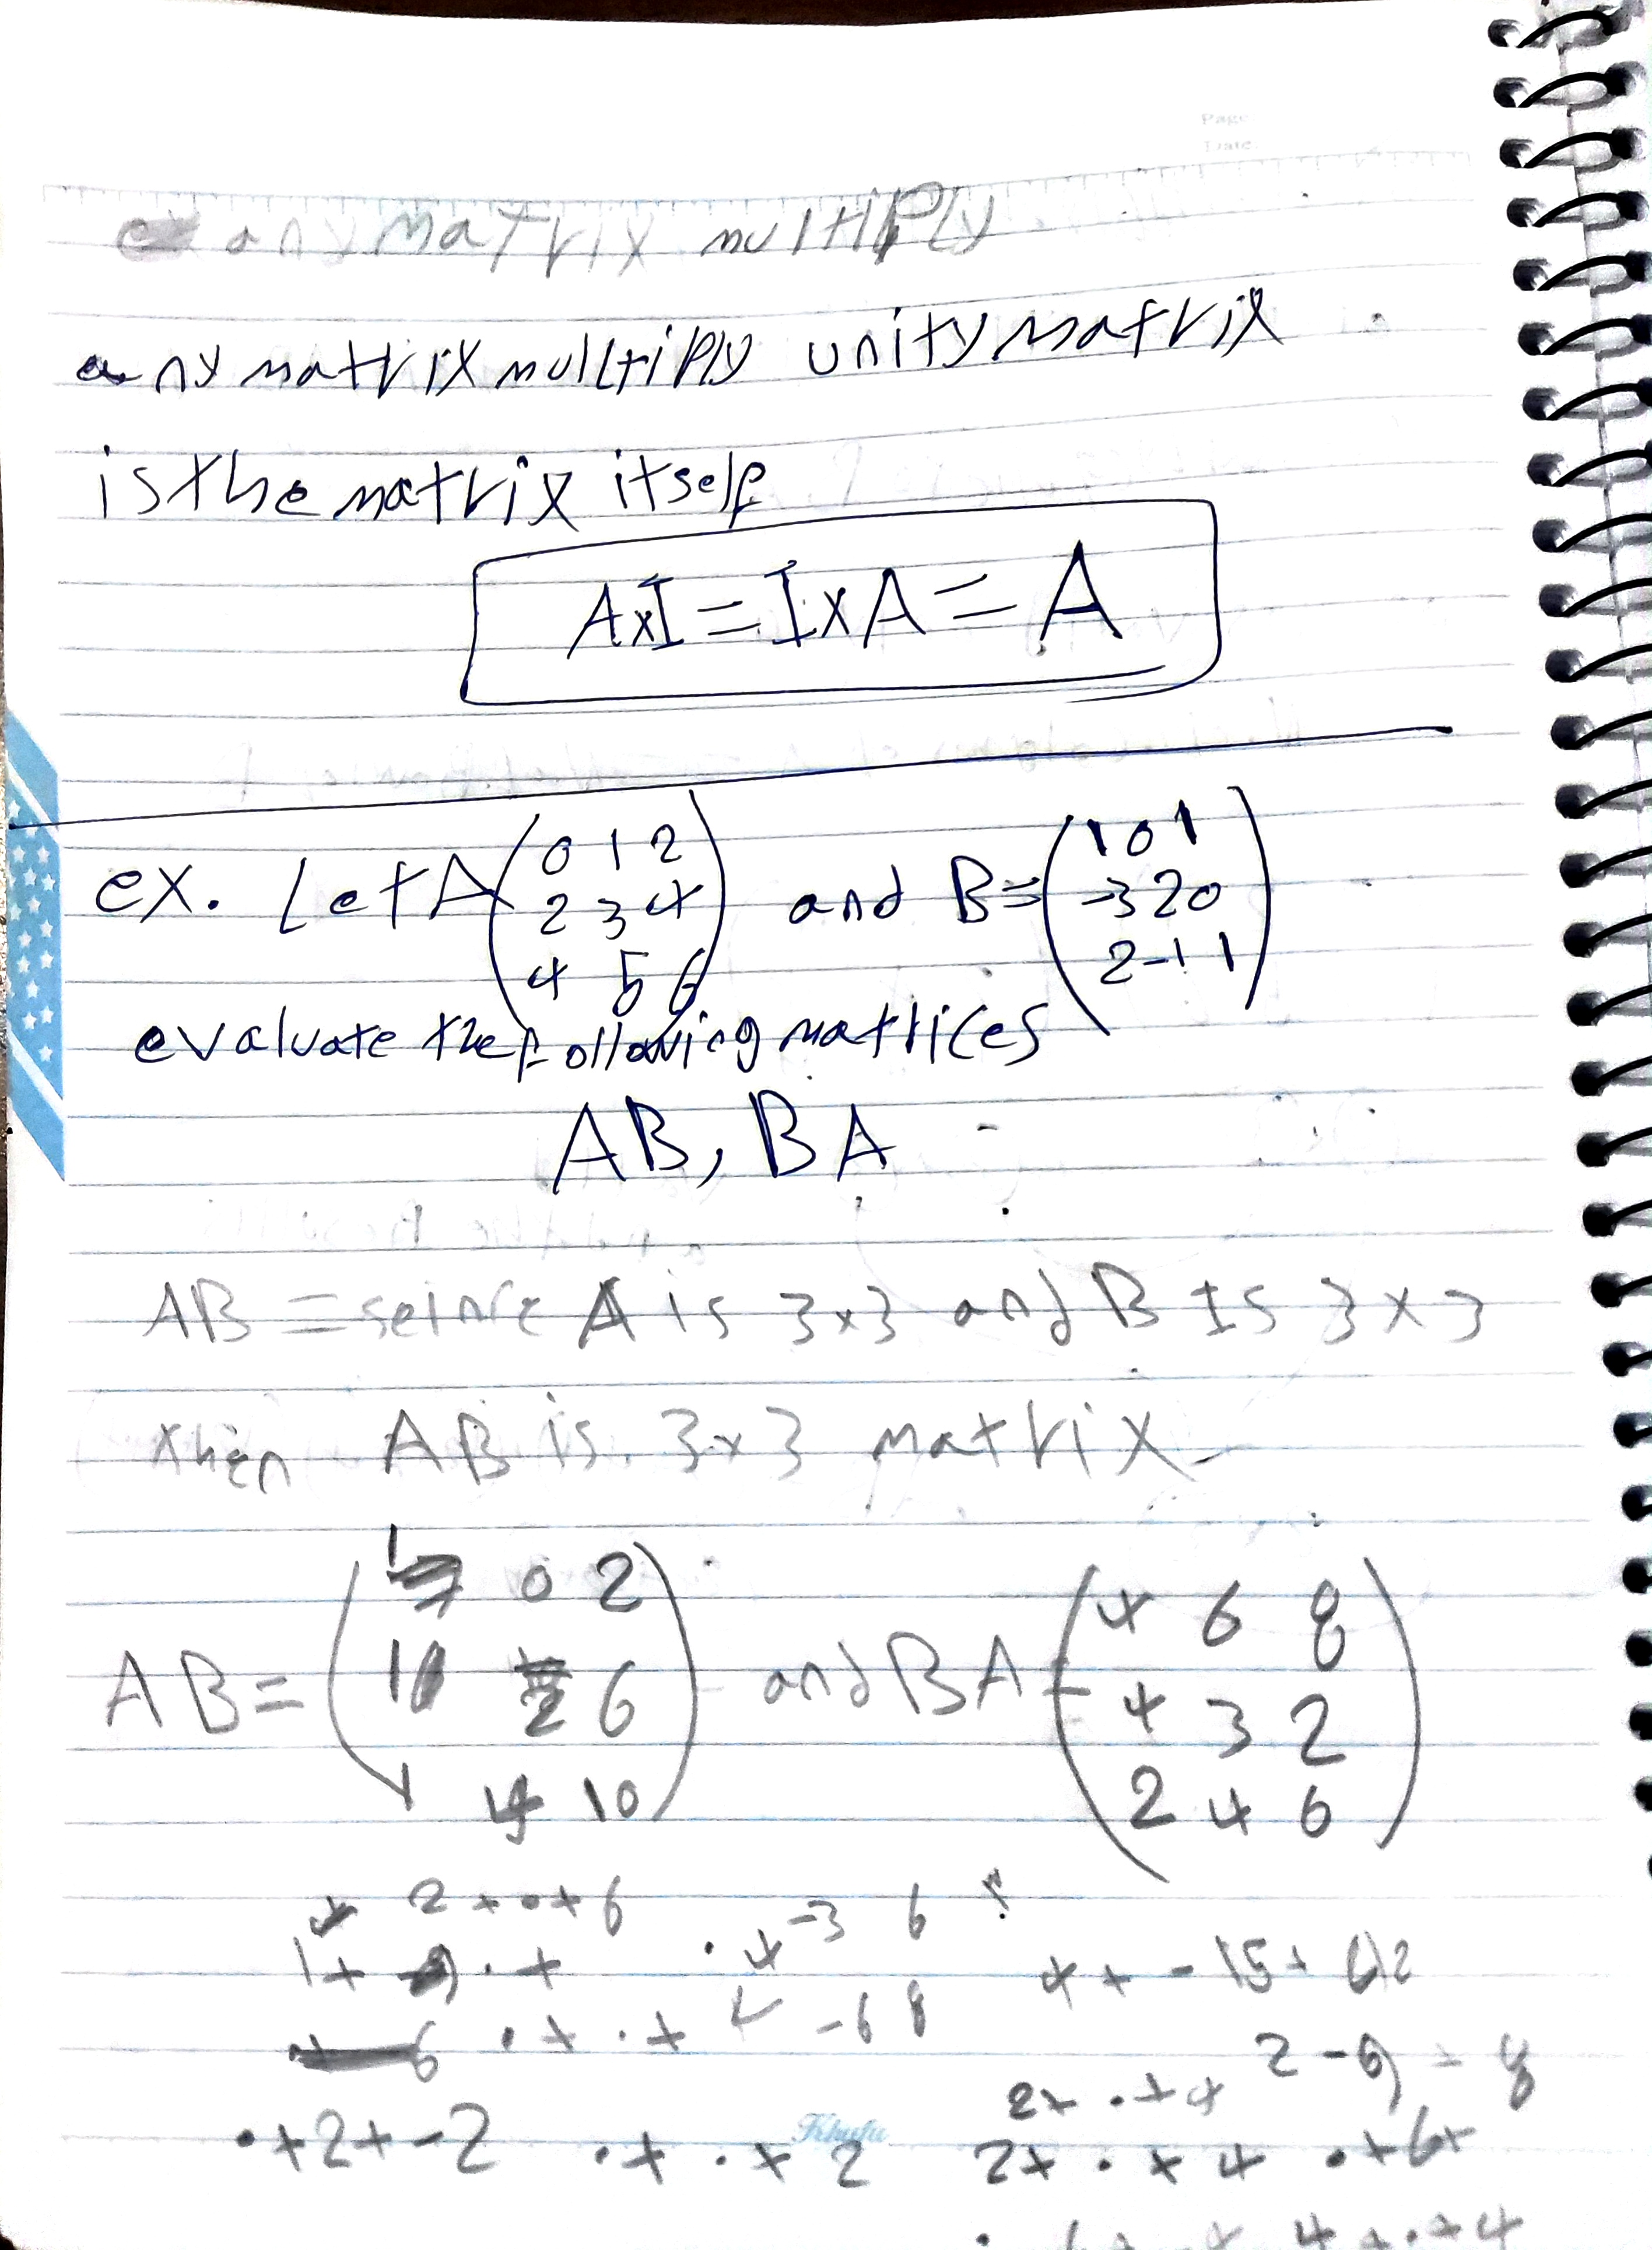 Page
Date
any matrix multiply
any matrix multiply unity matrix
is the matrix itself
AxI = IxA = A
ex. Let A (0 1 2 and B = (1 0 1
2 3 4 -3 2 0
4 5 6) 2 -1 1)
evaluate the following matrices
AB, BA
AB = seince A is 3x3 and B Is 3x3
then AB is 3x3 matrix
AB = (1 0 2 and BA = (4 6 8
1 2 6 4 3 2
1 4 10) 2 4 6)
2 + • + 6 -3 6
1 + • + 4 + - 15 + 12
6 • + • + -6 8
2 - 9 8
2+ • + 4
• + 2 + -2 • + • + 2 2 + • + 4 • + 6 +
Khufu
4 + • + 4